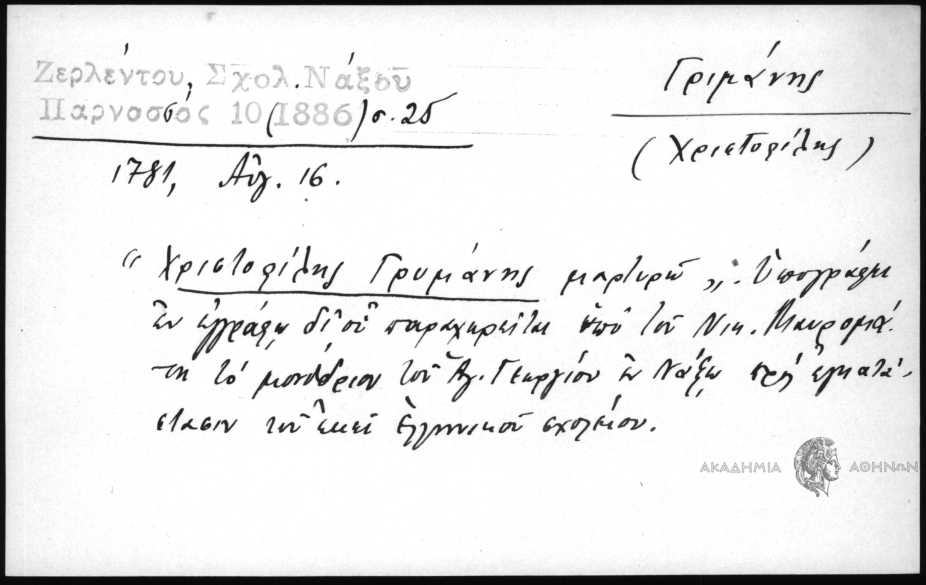 Ζερλέντου, Σχολ. Νάξου
Παρνασσός 10 (1886) σ. 25
Γριμάνης
(Χριστοφίλης)
1781, Αὐγ. 16.
"Χριστοφίλης Γρυμάνης μαρτυρῶ". Ὑπογράφει
ἐν ἐγγράφῳ δι' οὗ παραχωρεῖται ὑπὸ τοῦ Νικ. Μαυρομμά-
τη τὸ μονύδριον τοῦ Ἁγ. Γεωργίου ἐν Νάξῳ πρὸς ἐγκατά-
στασιν τοῦ ἐκεῖ ἑλληνικοῦ σχολείου.
ΑΚΑΔΗΜΙΑ ΑΘΗΝΩΝ